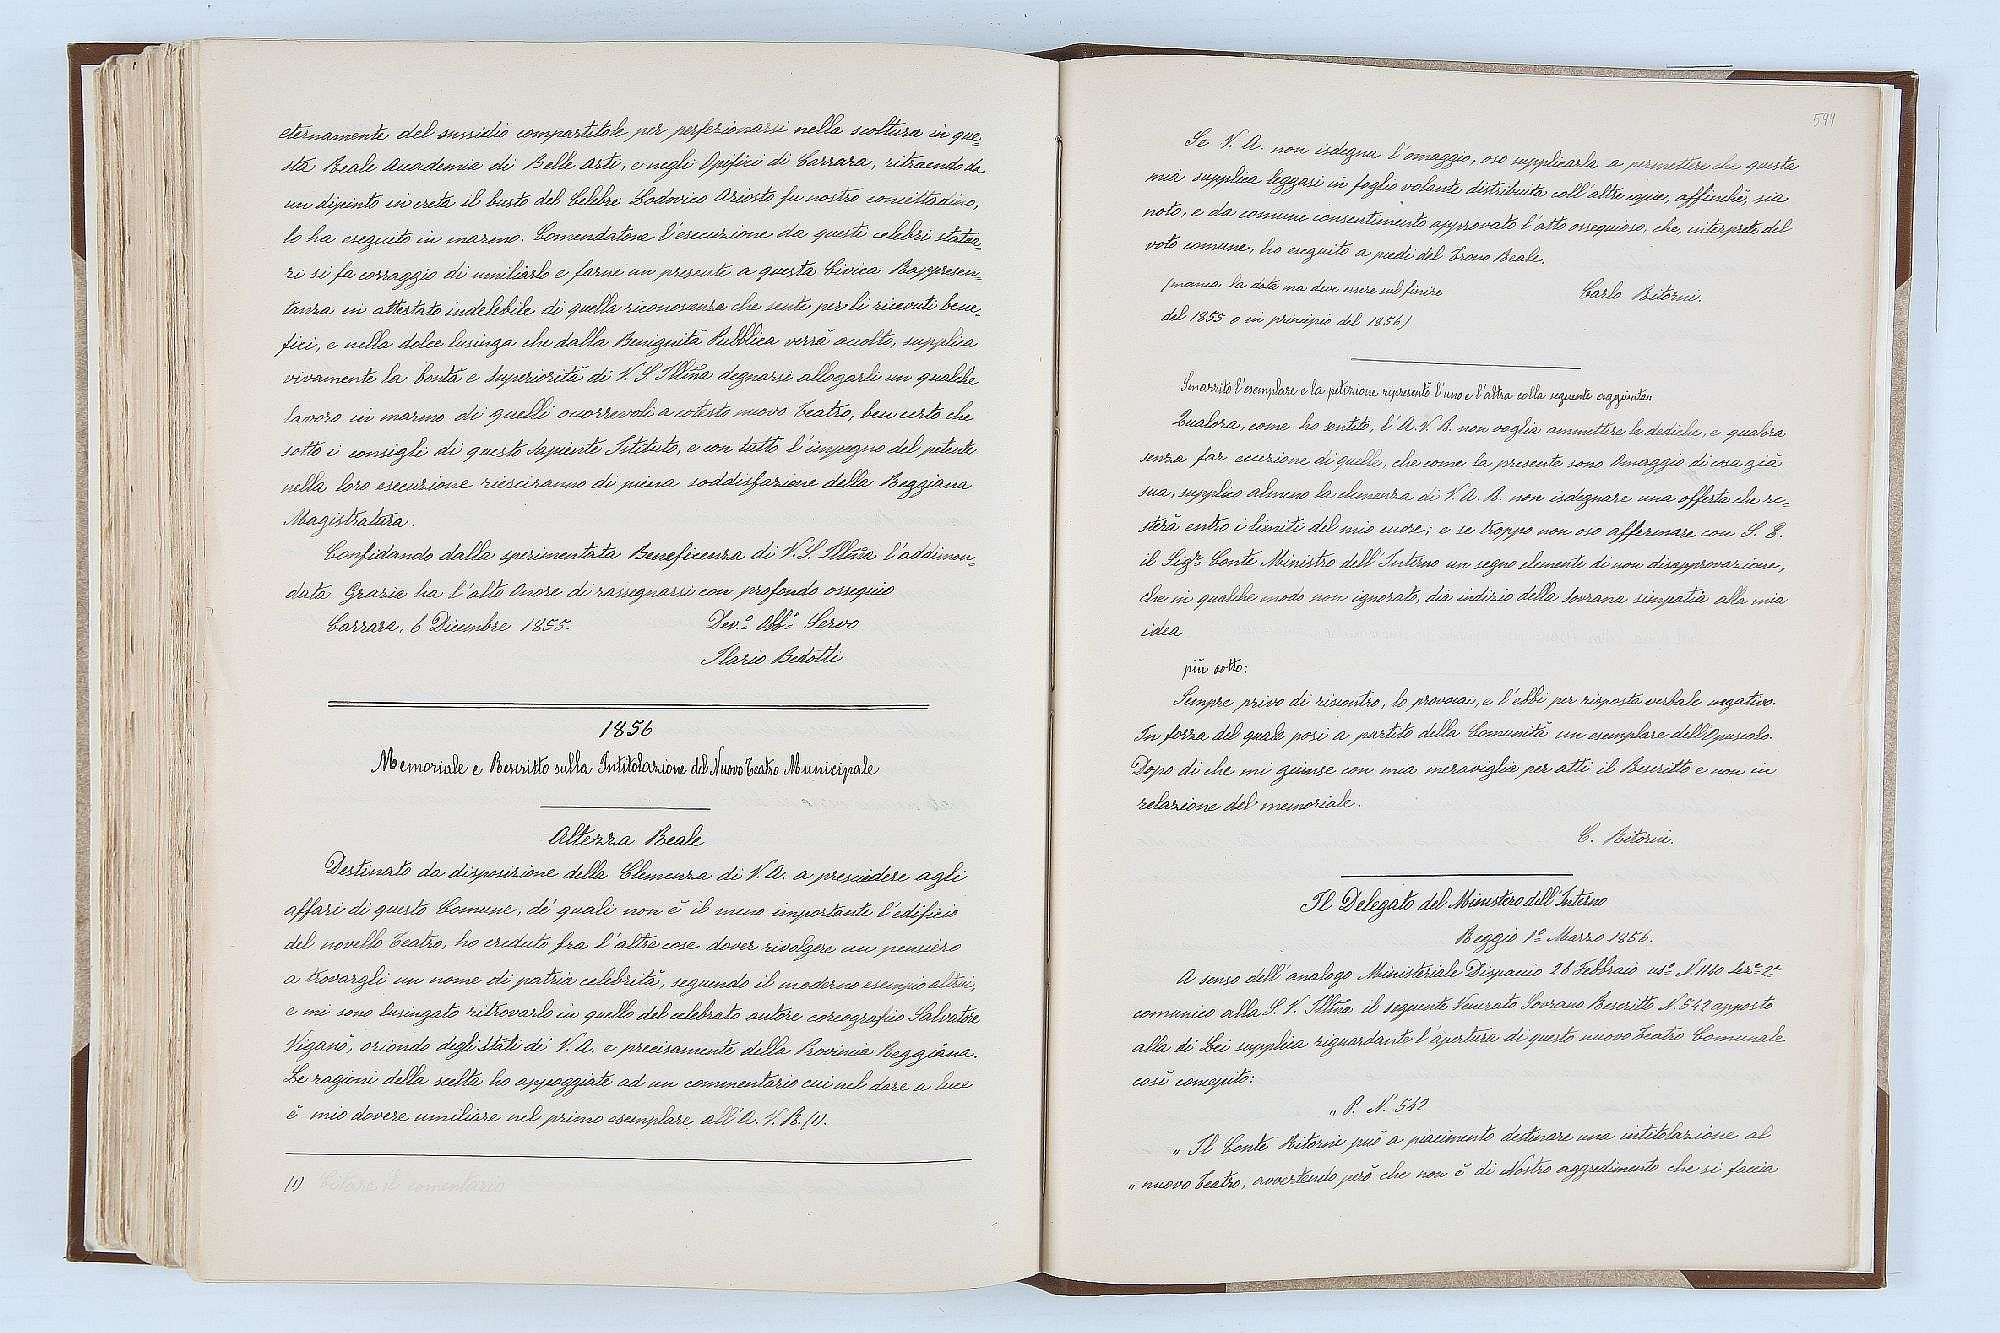 eternamente del sussidio compartitole per perfezionarsi nella scoltura in que-
sta Reale Accademia di Belle Arti, e negli Opifici di Carrara, ritraendo da
un dipinto in creta il busto del Celebre Lodovico Ariosto fu nostro concittadino,
lo ha eseguito in marmo. Comendatone l'esecuzione da questi celebri statua-
ri si fa corraggio di umiliarlo e farne un presente a questa Civica Rappresen-
tanza in attestato indelebile di quella riconosenza che sente per li ricevuti bene-
fici, e nella dolce lusinga che dalla Benignità Pubblica verrà accolto, supplica
vivamente la bontà e Superiorità di V. S. Illma degnarsi allogarli un qualche
lavoro in marmo di quelli occorrevoli a cotesto nuovo Teatro, ben certo che
sotto i consigli di questo sapiente Istituto, e con tutto l'impegno del petente
nella loro esecuzione riesciranno di piena soddisfazione della Reggiana
Magistratura.
Confidando dalla sperimentata Beneficenza di V. S. Illma l'addiman-
data Grazia ha l'alto Onore di rassegnarsi con profondo ossequio
Carrara, 6 Dicembre 1855. Dev.o Obb.o Servo
Ilario Bedotti
1856
Memoriale e Rescritto sulla Intitolazione del Nuovo Teatro Municipale
Altezza Reale
Destinato da disposizione della Clemenza di V. A. a presiedere agli
affari di questo Comune, de' quali non è il meno importante l'edificio
del novello Teatro, ho creduto fra l'altre cose dover rivolgere un pensiero
a trovargli un nome di patria celebrità, seguendo il moderno esempio altrui,
e mi sono lusingato ritrovarlo in quello del celebrato autore coreografico Salvatore
Viganò, oriondo degli Stati di V. A. e precisamente della Provincia Reggiana.
Le ragioni della scelta ho appoggiate ad un commentario cui nel dare a luce
è mio dovere umiliare nel primo esemplare all'A. V. R. (1).
(1) Citare il comentario
599
Se V. A. non isdegna l'omaggio, oso supplicarla a permettere che questa
mia supplica leggasi in foglio volante distribuita coll'altre copie, affinchè, sia
noto, e da comune consentimento approvato l'atto ossequioso, che, interprete del
voto comune, ho eseguito a piedi del Trono Reale.
(manca la data ma deve essere sul finire Carlo Ritorni.
del 1855 o in principio del 1856)
Smarrito l'esemplare e la petizione represento l'uno e l'altra colla seguente aggiunta:
Qualora, come ho sentito, l'A. V. R. non voglia ammettere le dediche, e qualora
senza far eccezione di quelle, che come la presente sono Omaggio di cosa già
sua, supplico almeno la clemenza di V. A. R. non isdegnare una offerta che re-
sterà entro i limiti del mio cuore; e se troppo non oso affermare con S. E.
il Sig.r Conte Ministro dell'Interno un segno clemente di non disapprovazione,
che in qualche modo non ignorato, dia indizio della sovrana simpatia alla mia
idea
più sotto:
Sempre privo di riscontro, lo provocai, e l'ebbi per risposta verbale negativo.
In forza del quale posi a partito della Comunità un esemplare dell'Opuscolo.
Dopo di che mi giunse con mia meraviglia per atti il Rescritto e non in
relazione del memoriale.
C. Ritorni.
Il Delegato del Ministero dell'Interno
Reggio 1º Marzo 1856.
A senso dell'analogo Ministeriale Dispaccio 26 Febbraio N. 1140
comunico alla S. V. Illma il seguente Venerato Sovrano Rescritto N. 542 apposto
alla di Lei supplica riguardante l'apertura di questo nuovo Teatro Comunale
così concepito:
„ P. N. 542
„ Il Conte Ritorni può a piacimento destinare una intitolazione al
„ nuovo Teatro, avvertendo però che non è di Nostro aggredimento che si faccia